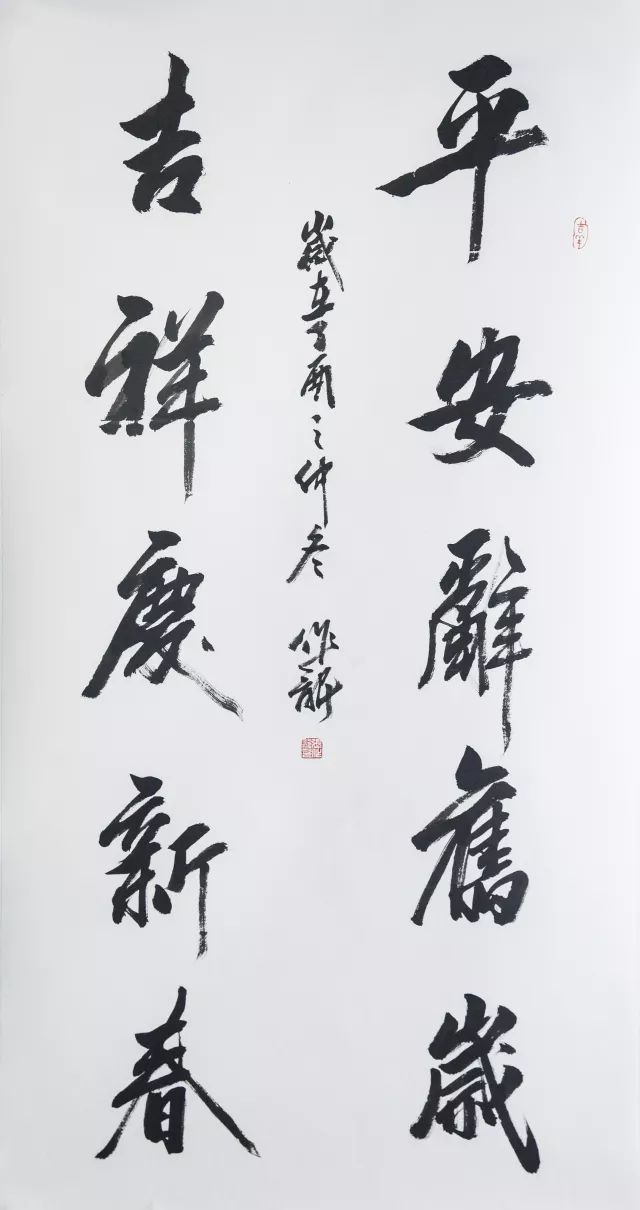 平安辭舊歲
吉祥慶新春
歲在丁酉之仲冬